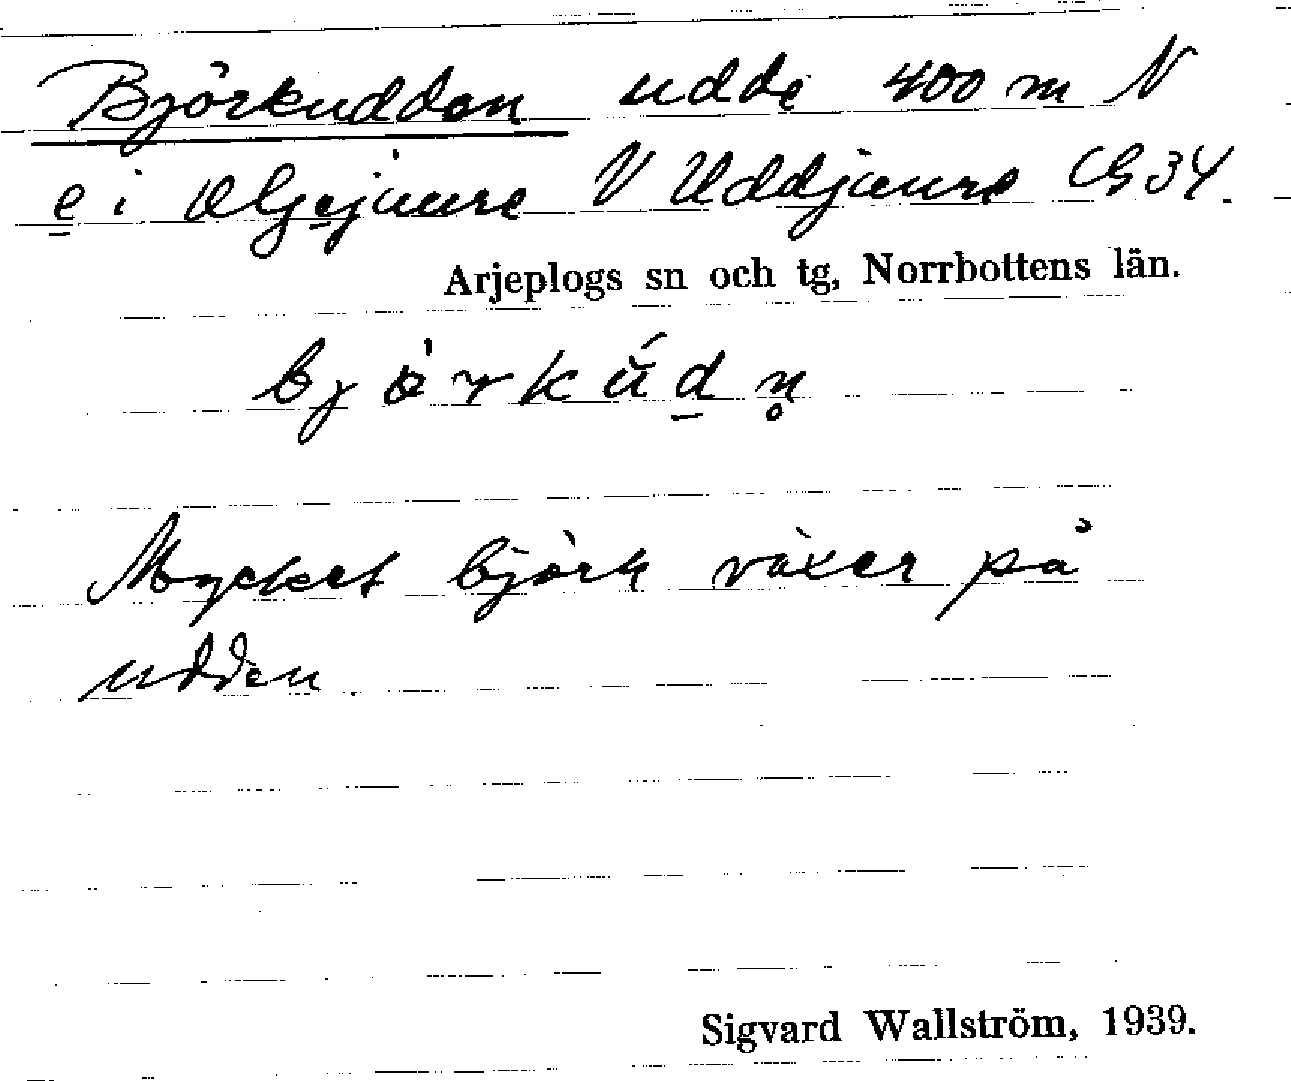 Björkudden udde 400 m N
e i Algejaure V Uddjaure CG 34.
Arjeplogs sn och tg, Norrbottens län.
bjòrkŭ́dn̥
Mycket björk växer på
udden.
Sigvard Wallström, 1939.